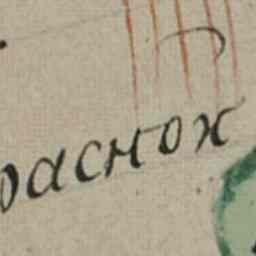 раснох